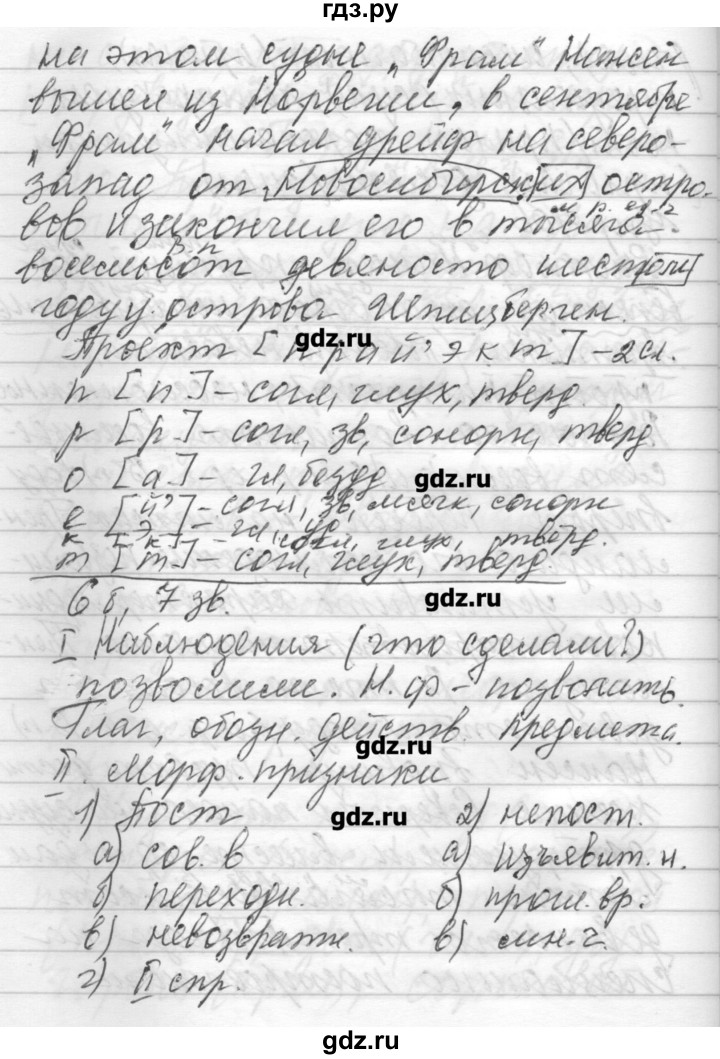 гдз.ру
на этом судне „Фрам" Нансен
вышел из Норвегии, в сентябре
„Фрам" начал дрейф на северо-
запад от Новосибирских остро-
м. р. ед. ч
вов и закончил его в тысяча
восемьсот девяносто шестом
году у острова Шпицберген.
gdz.ru
Проект [п р а й' э к т] - 2 сл.
п [п] - согл, глух, тверд.
р [р] - согл, зв, сонорн, тверд
о [а] - гл, безуд
gdz.ru
е [й'] - согл, зв, мягк, сонорн
[э] - гл, уд
к [к] - согл, глух, тверд.
т [т] - согл, глух, тверд.
6 б, 7 зв.
gdz.ru
I Наблюдения (что сделали?)
позволили. Н.ф - позволить.
Глаг, обозн. действ. предмета.
gdz.ru
II. Морф. признаки
1) Пост 2) непост.
gdz.ru
а) сов. в а) изъявит. н.
б) переходн. б) прош. вр.
в) невозвратн. в) мн. ч.
г) II спр.
gdz.ru